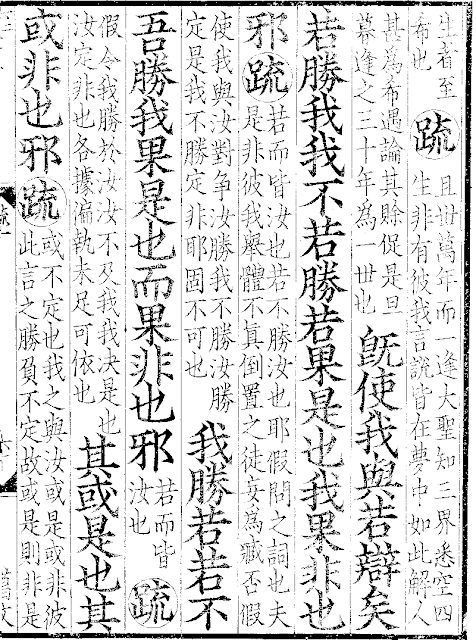 生者至
希也
疏
且世萬年而一逢大聖知三界悉空四
生非有彼我言説皆在夢中如此解人
甚爲希遇論其賒促是旦
暮逢之三十年爲一世也
旣使我與若辯矣
若勝我我不若勝若果是也我果非也
邪疏
若而皆汝也若不勝汝也耶假問之詞也夫
是非彼我舉體不真倒置之徒妄爲臧否假
使我與汝對爭汝勝我不勝汝勝
定是我不勝定非耶固不可也
我勝若若不
吾勝我果是也而果非也邪
若而皆
汝也
疏
假令我勝於汝汝不及我我决是也
汝定非也各據偏執未足可依也
其或是也其
或非也邪疏
或不定也我之與汝或是或非彼
此言之勝負不定故或是則非是